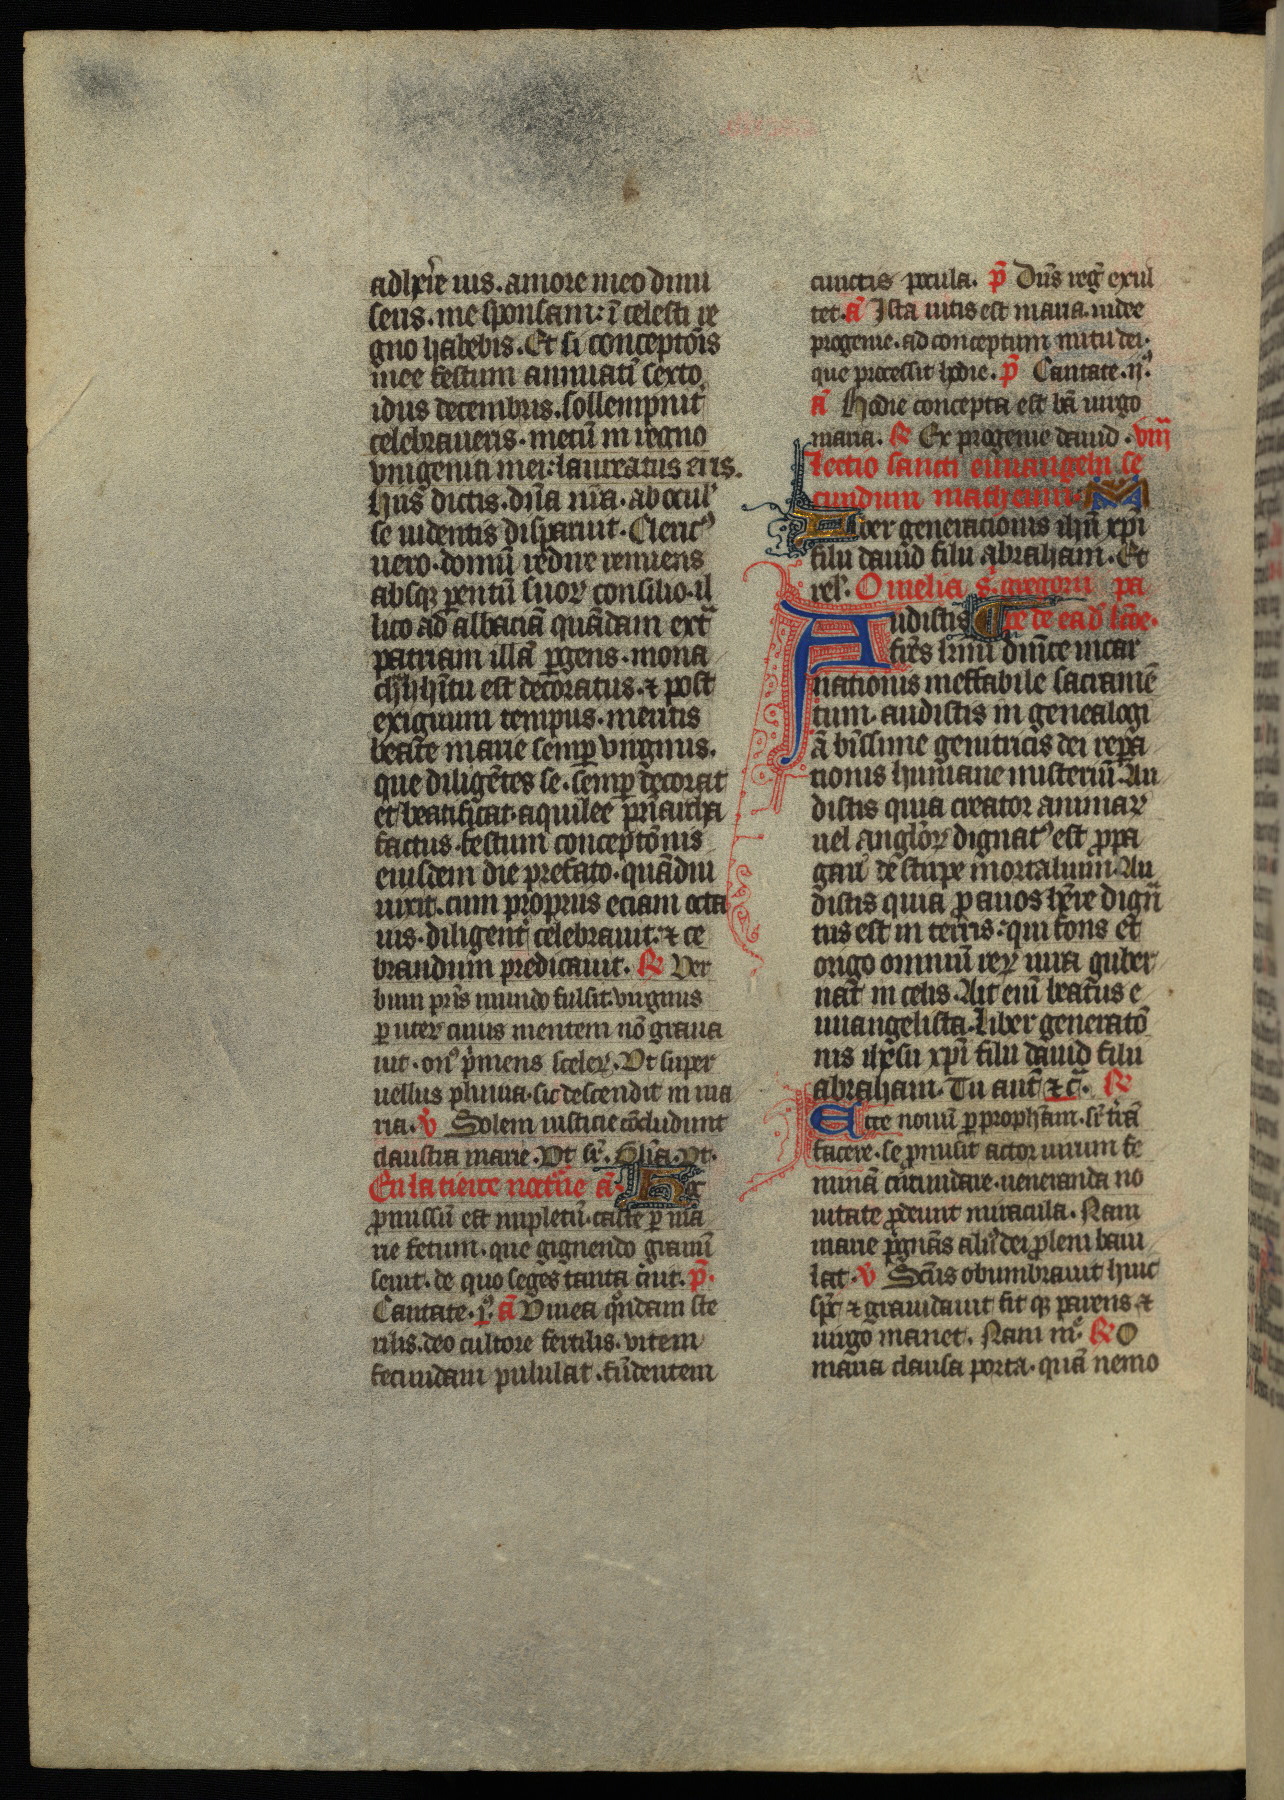 adhe͛re uis. amore meo dimi
seris. me sponsam: ī celesti re
gno habebis. Et si conceptōis
mee festum annuatī sexto
idus decembris. sollempnit͛
celebraueris. mecū in regno
vnigeniti mei: laureatus eris.
Hiis dictis. dn̄a nr̄a. ab ocul'
se uidentis disparuit. Cleric9
uero. domū redire renuens
absq; pentū suoꝝ consilio. il
lico ad abbaciā quādam extͣ
patriam illā ꝑgens. mona
est decoratus. ⁊ post
exiguum tempus. meritis
beate marie semꝑ virginis.
que diligētes se. semꝑ decorat
et beatificat. aquilee pͥarcha
factus. festum conceptōnis
eiusdem die prefato. quādiu
uixit. cum propriis eciam octa
uis. diligent͛ celebrauit. ⁊ ce
brandum predicauit. ℟ Ver
bum pr̄is mundo fulsit. virginis
ꝑ uterū cuius mentem nō graua
uit. on9 pͥmens sceleꝝ. Vt super
uellus pluuia. sic descendit in ma
ria. v̄ Solem iusticie cōcludunt
claustra marie. Vt sr̄. Gl'ia. Vt.
En la tierce noct͛ne ā. Hec
ꝓmissū est impletū. caste ꝑ ma
rie fetum. que gignendo granū
seuit. de quo seges tanta ciuit. p̄.
Cantate. j9. ā Vinea qͦndam ste
rilis. deo cultore fertilis. vitem
fecundam pululat. fūdentem
cunctis pocula. p̄ Dn̄s reḡ exul
tet. ā Ista uitis est maria. iudee
progenie. ad conceptum nutu dei.
que processit hodie. p̄ Cantate. ij9.
ā Hodie concepta est bā uirgo
maria. ℟ Ex progenie dauid. viij
Lectio sancti euuangelii se
cundum matheum. M
Liber generationis ih̄u xp̄i
filii dauid filii abraham. Et
rel'. Omelia s. gregorii pa
pe de ead' lc̄ōe.
Audistis
fr̄es kmi dn̄ice incar
nationis ineffabile sacramē
tum. audistis in genealogi
ā bīssime genitricis dei reꝑa
tionis humane misteriū. Au
distis quia creator animaꝝ
uel angl̄oꝝ dignat9 est ꝓpa
gari de stirpe mortalium. Au
distis quia ꝓauos hr̄e dignͣ
tus est in terris: qui fons et
origo omniū reꝝ iura guber
nat in celis. Ait enī beatus e
uuangelista. Liber generatō
nis ihesu xp̄i filii dauid filii
abraham. Tu aut̄ ⁊ c̄. ℟
Ecce nouū ꝑ prophetam. sr̄ tr̄ā
facere. se ꝓmisit actor uirum fe
minā circumdare. ueneranda no
uitate ꝓdeunt miracula. Nam
marie pͥgnās aluus dei ꝓlem baiu
lat. v̄ Sc̄us obumbrauit huic
sp̄c ⁊ grauidauit fit q; parens ⁊
uirgo manet. Nam mͥͤ. ℟ O
maria clausa porta. quā nemo